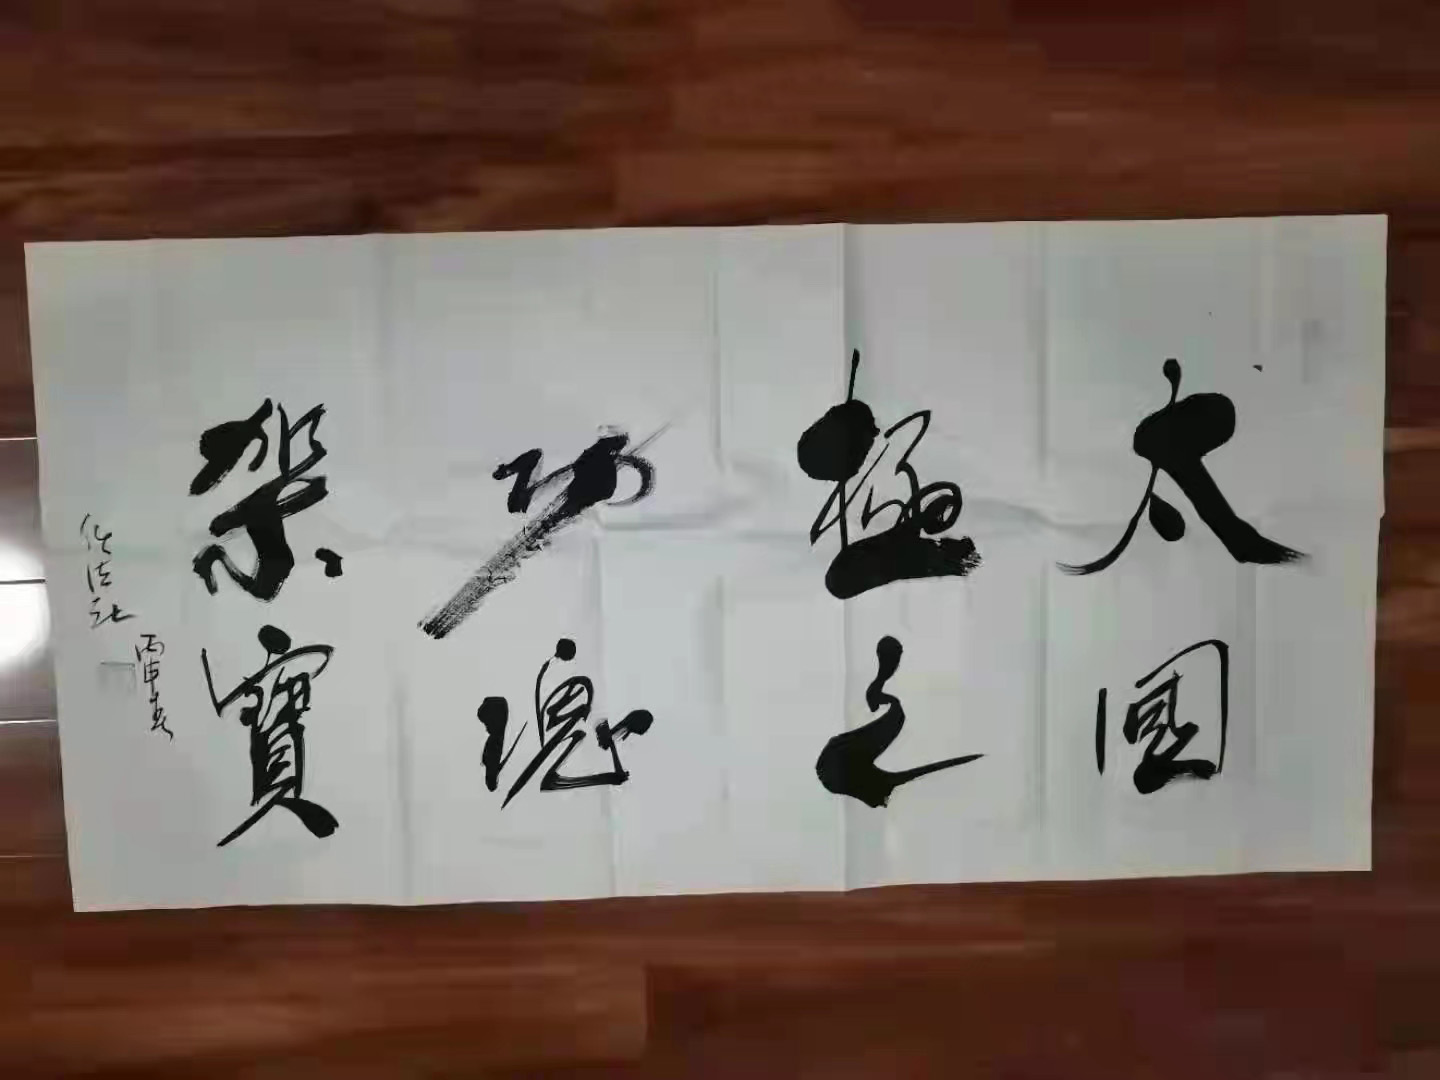 太極功架
國之瑰寶
丙申春